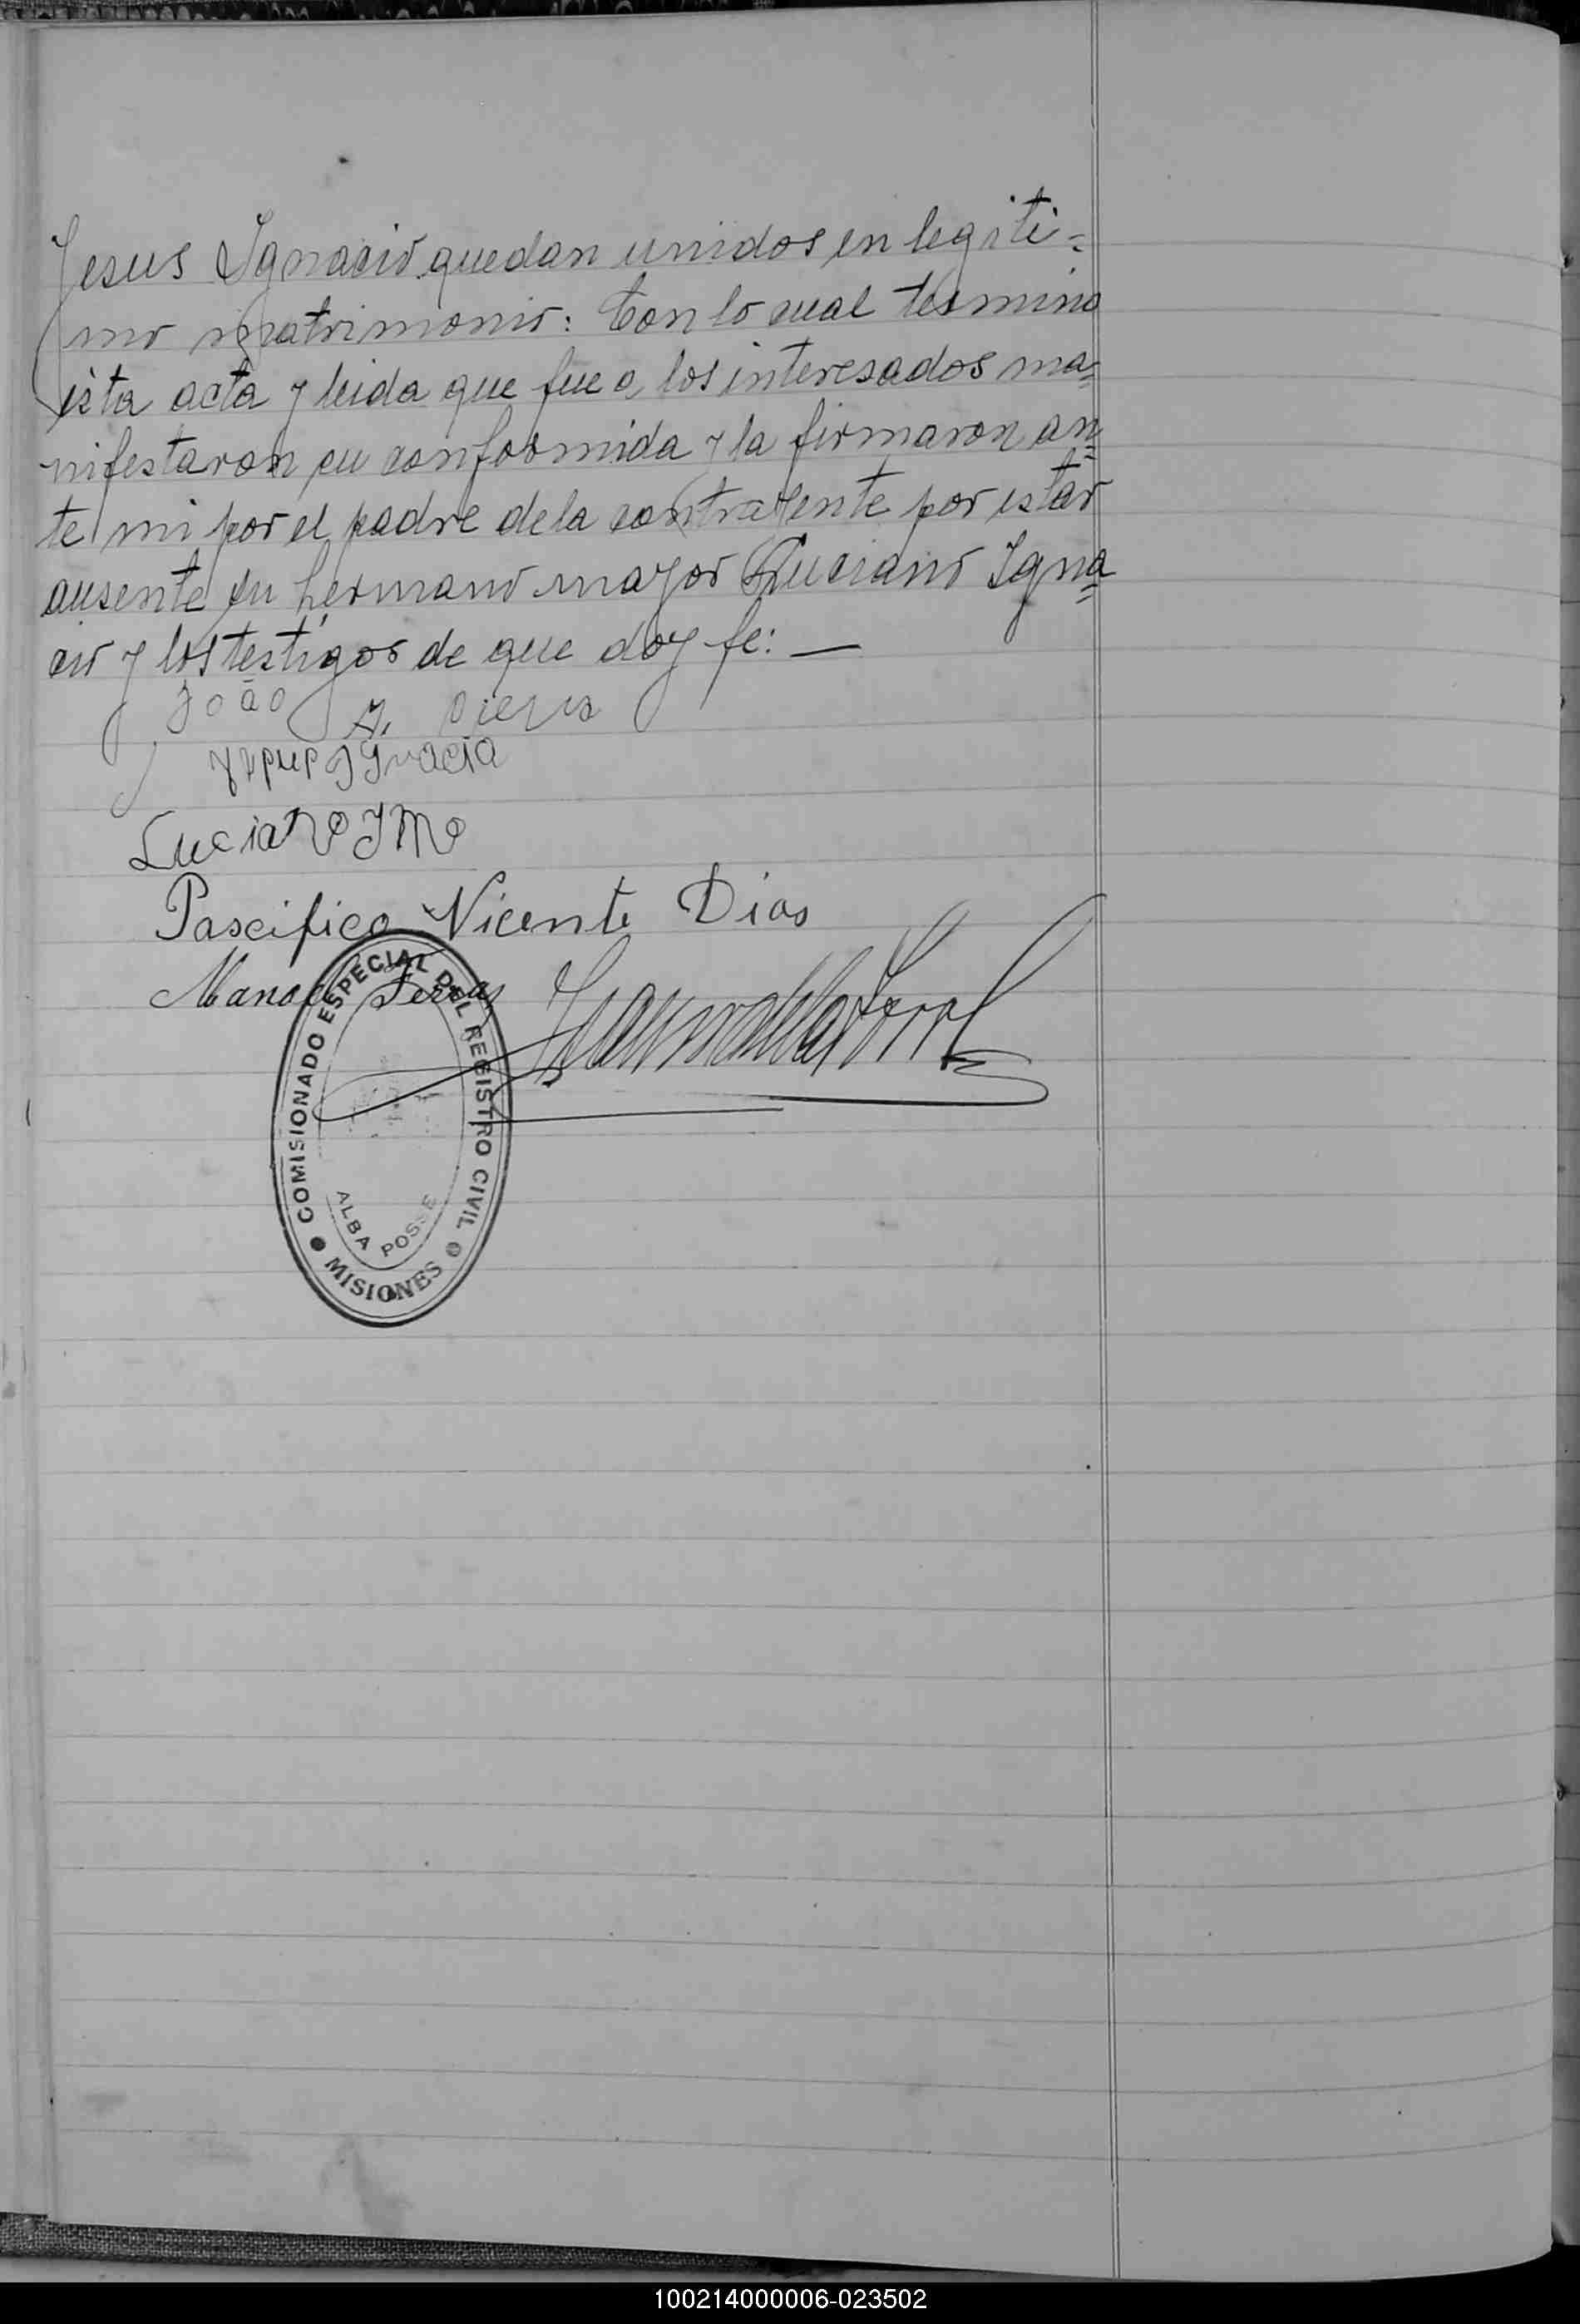 Jesus Ignacio quedan unidos en legiti=
mo matrimonio: Con lo cual termino
ésta acta y leida que fue a los interesados ma=
nifestaron su conformida y la firmaron an=
te mi por el padre de la contrayente por estar
ausente su hermano mayor Luciano Igna=
cio y los testigos de que doy fe: —
João
Luciano
Pascifico Vicente Dias
Manoel
COMISIONADO ESPECIAL DEL REGISTRO CIVIL
ALBA POSSE
MISIONES
100214000006-023502